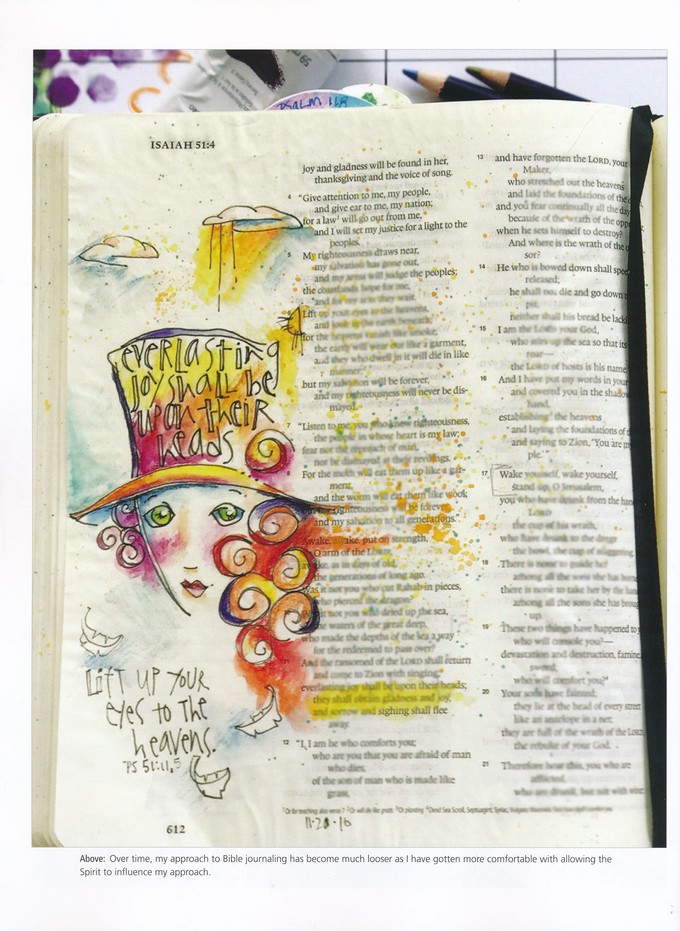 Psalm 118
ISAIAH 51:4
everlasting
joy shall be
upon their
heads
Lift up your
eyes to the
heavens.
joy and gladness will be found in her,
thanksgiving and the voice of song.
4 "Give attention to me, my people,
and give ear to me, my nation;
for a law will go out from me,
and I will set my justice for a light to the
peoples.
5 My righteousness draws near,
my salvation has gone out,
and my arms will judge the peoples;
the coastlands hope for me,
Lift up your eyes to the heavens,
and look at the earth beneath;
for the heavens vanish like smoke,
the earth will wear out like a garment,
and they who dwell in it will die in like
manner;
but my salvation will be forever,
and my righteousness will never be dis-
mayed.
7 "Listen to me, you who know righteousness,
the people in whose heart is my law;
fear not the reproach of man,
nor be dismayed at their revilings.
For the moth will eat them up like a gar-
ment,
and the worm will eat them like wool;
but my righteousness will be forever,
and my salvation to all generations."
Awake, awake, put on strength,
O arm of the LORD;
awake, as in days of old,
the generations of long ago.
Was it not you who cut Rahab in pieces,
who pierced the dragon?
Was it not you who dried up the sea,
the waters of the great deep,
who made the depths of the sea a way
for the redeemed to pass over?
And the ransomed of the LORD shall return
and come to Zion with singing;
everlasting joy shall be upon their heads;
they shall obtain gladness and joy,
and sorrow and sighing shall flee
away.
12 "I, I am he who comforts you;
who are you that you are afraid of man
who dies,
of the son of man who is made like
grass,
13 and have forgotten the LORD, your
Maker,
who stretched out the heavens
and laid the foundations of the
and you fear continually all the day
because of the wrath of the opp
when he sets himself to destroy?
And where is the wrath of the
sor?
14 He who is bowed down shall spee
released;
he shall not die and go down
pit,
neither shall his bread be lack
15 I am the LORD your God,
who stirs up the sea so that its
roar—
the LORD of hosts is his name.
16 And I have put my words in your
and covered you in the shadow
hand,
establishing the heavens
and laying the foundations of
and saying to Zion, 'You are m
ple.'"
17 Wake yourself, wake yourself,
stand up, O Jerusalem,
you who have drunk from the han
LORD
the cup of his wrath,
who have drunk to the dregs
the bowl, the cup of staggering.
18 There is none to guide her
among all the sons she has born
there is none to take her by the han
among all the sons she has broug
up.
19 These two things have happened to
who will console you?—
devastation and destruction, famine
sword;
who will comfort you?
20 Your sons have fainted;
they lie at the head of every street
like an antelope in a net;
they are full of the wrath of the LORD,
the rebuke of your God.
21 Therefore hear this, you who are
afflicted,
who are drunk, but not with wine:
11-28-16
612
Above: Over time, my approach to Bible journaling has become much looser as I have gotten more comfortable with allowing the
Spirit to influence my approach.